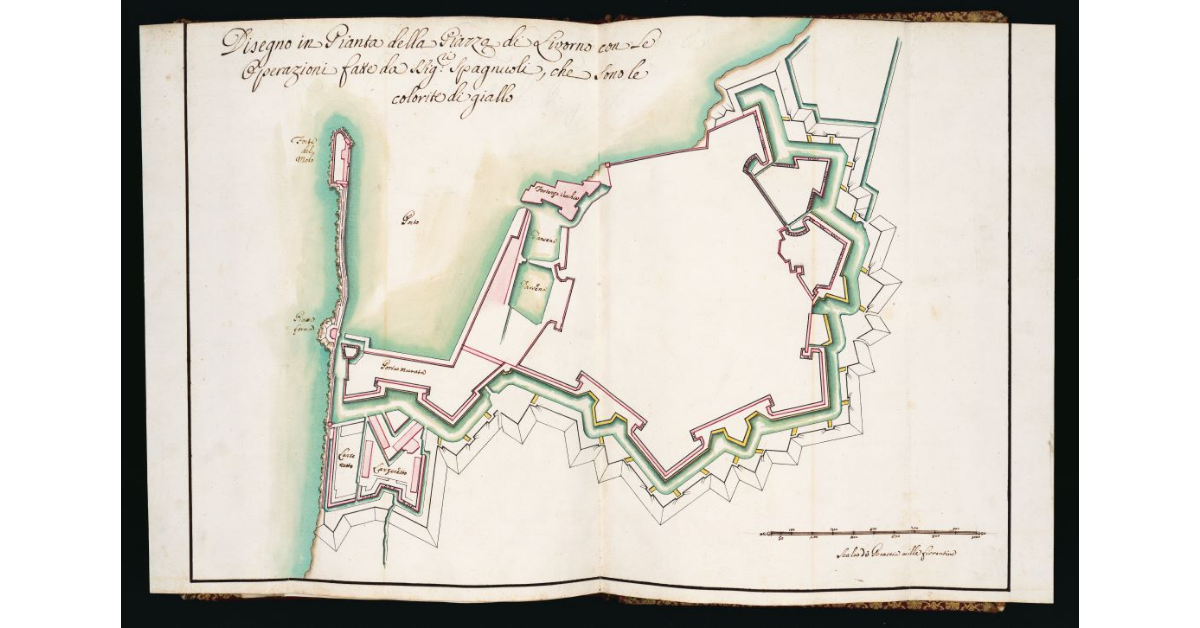 Disegno in Pianta della Piazza di Livorno con le
Operazioni fatte da Sig.ri Spagnuoli, che sono le
colorite di giallo
Forte
del
Molo
Porto
Fortezza Vecchia
Darsena
Darsena
Porto Murata
Lazeretto
Scala di Braccia mille fiorentine